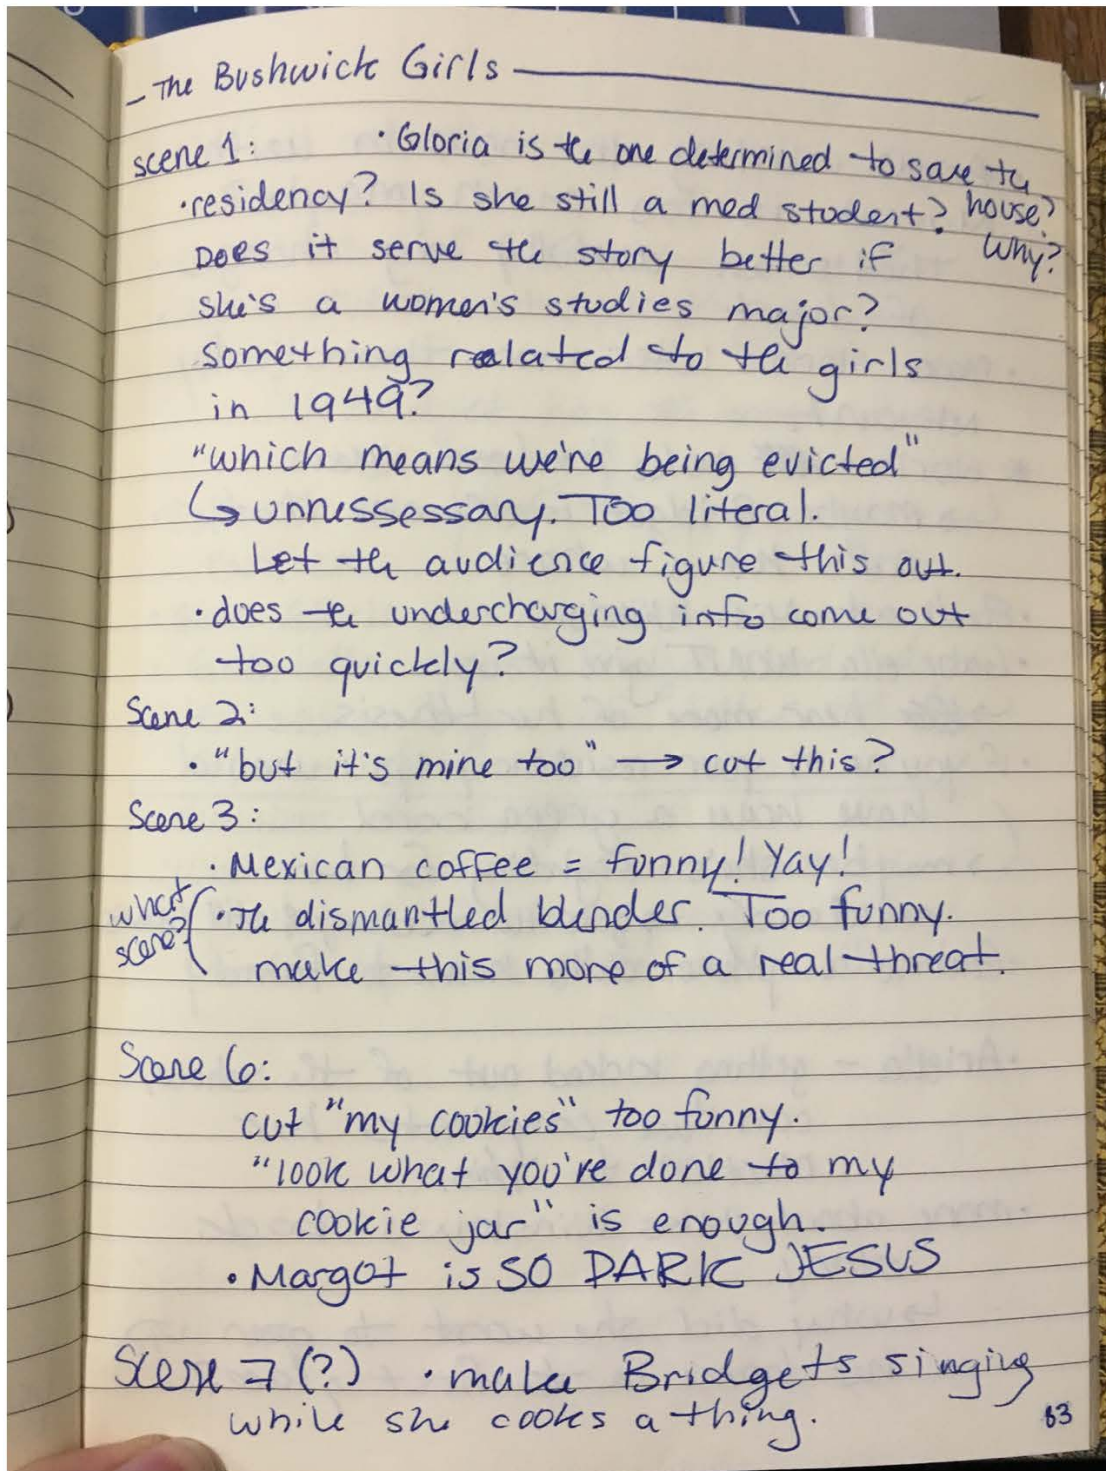 - The Bushwick Girls
scene 1: • Gloria is the one determined to save the house? Why?
• residency? Is she still a med student?
Does it serve the story better if
she's a women's studies major?
Something related to the girls
in 1949?
"which means we're being evicted"
↳ unnessessary. Too literal.
Let the audience figure this out.
• does the undercharging info come out
too quickly?
Scene 2:
• "but it's mine too" → cut this?
Scene 3:
• Mexican coffee = funny! Yay!
what scene?
• The dismantled blender. Too funny.
make this more of a real threat.
Scene 6:
cut "my cookies" too funny.
"look what you're done to my
cookie jar" is enough.
• Margot is SO DARK JESUS
Scene 7 (?) • make Bridgets singing
while she cooks a thing.
83